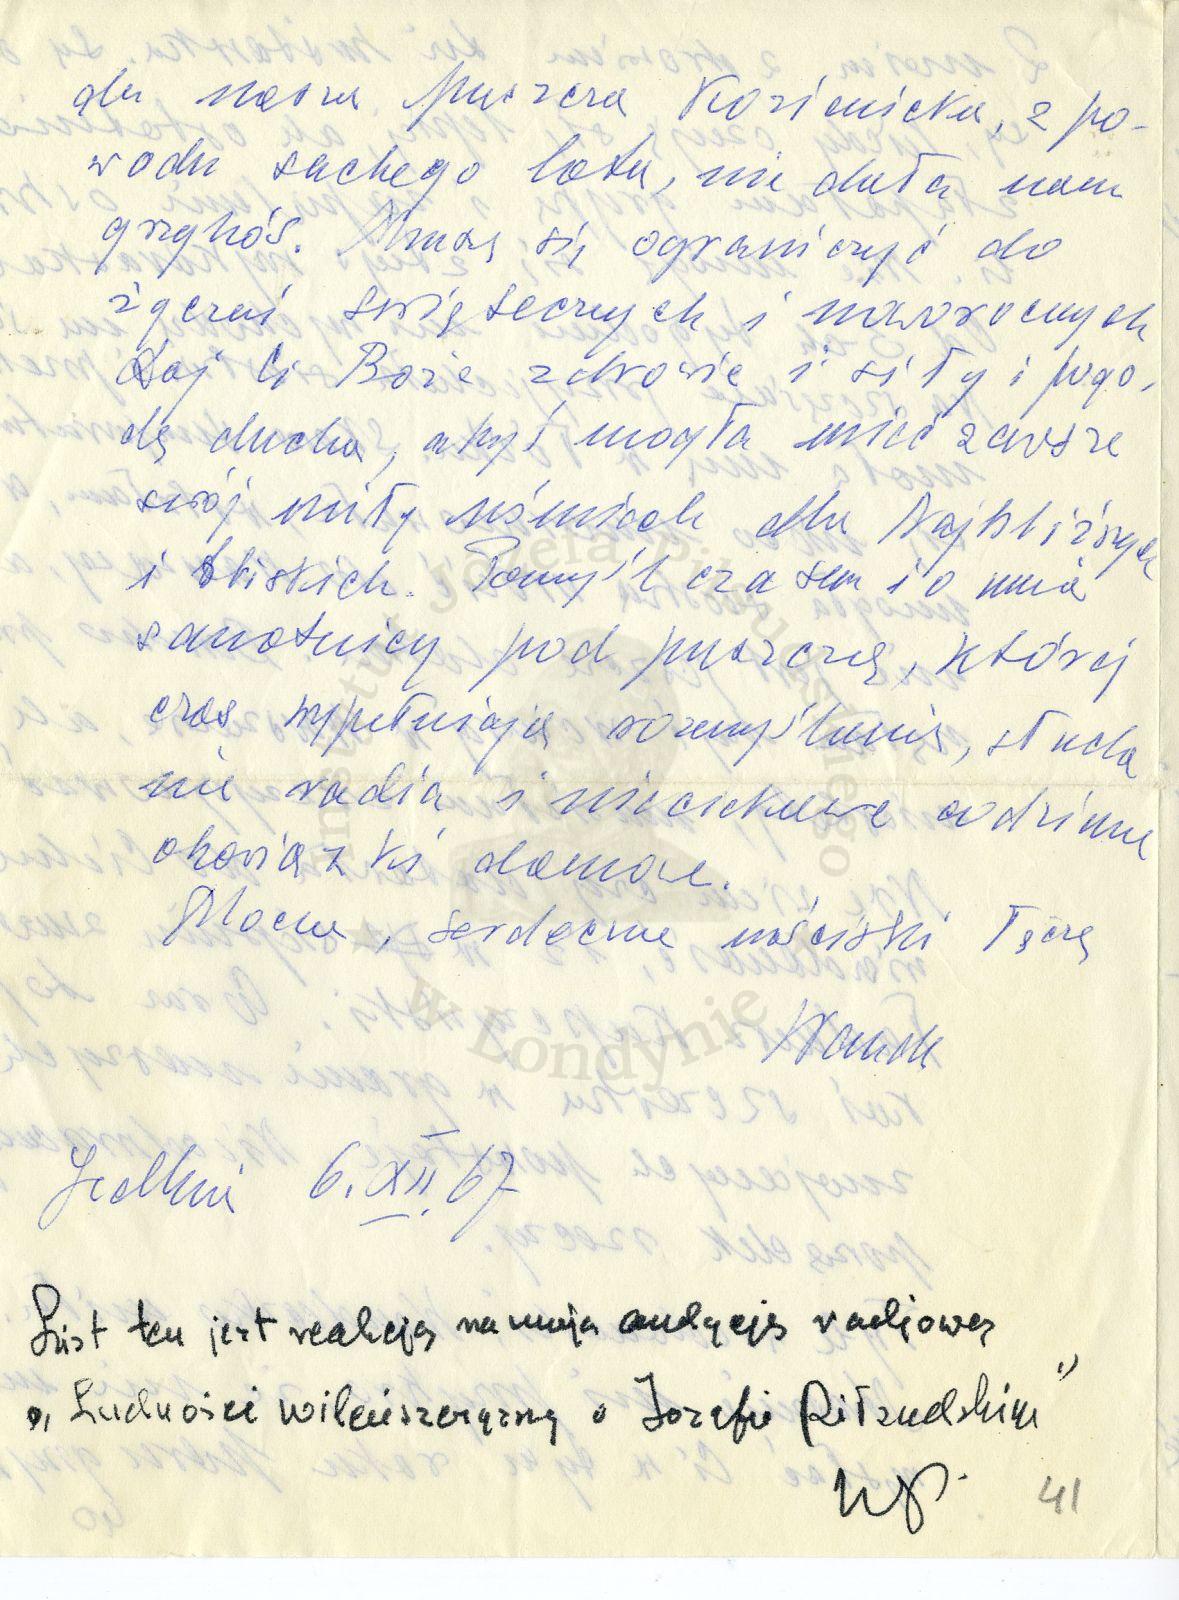 gdu nasza puszcza Kozienicka, z po-
wodu suchego lata, nie dała nam
grzybów. Muszę się ograniczyć do
życzeń świątecznych i noworocznych
Daj Ci Boże zdrowie i siły i pogo-
dę ducha, abyś mogła mieć zawsze
swój miły uśmiech dla Najbliższych
i bliskich. Pomyśl czasem i o mnie
samotnicy pod puszczą, której
czas wypełniają rozmyślania, słucha
nie radia i nieciekawe codzienne
obowiązki domowe.
Mocne, serdeczne uściski łączę
Wanda
Jedlnia 6.XII.67
List ten jest reakcją na moją audycję radiową
„Ludności wileńszczyzną o Józefie Piłsudskim"
WP.
41
Instytut Józefa Piłsudskiego
w Londynie